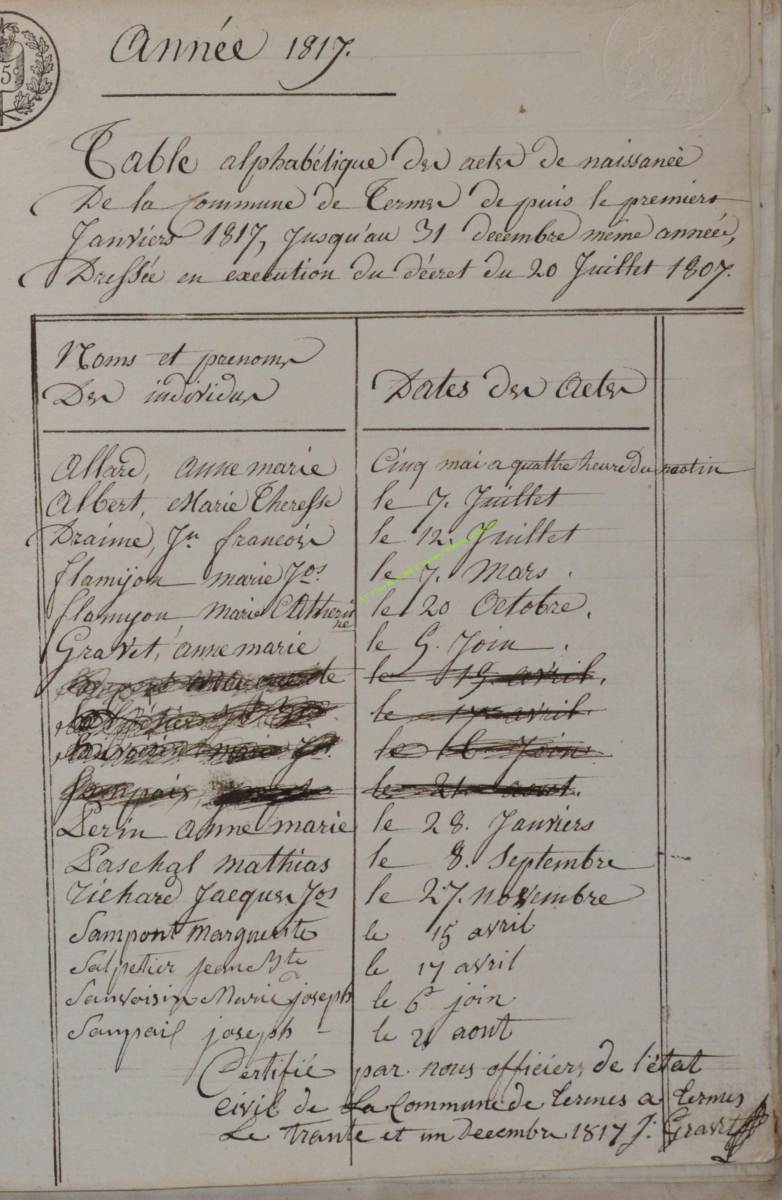 5
Année 1817.
Table alphabétique des actes de naissance
De la Commune de Termes de puis le premiers
Janviers 1817, Jusqu'au 31 decembre même année,
Dressée en execution du décret du 20 Juillet 1807.
Noms et prenoms
Des individus
Dates des Actes
Allard, anne marie Cinq mai a quattre heure du matin
Albert, Marie Theresse le 7. Juillet
Draime, Jn francois le 12. Juillet
flamijon marie Jos le 7. Mars.
flamyon marie CAtherine le 20 Octobre.
Gravet, anne marie le 9. Join.
le 15 avril.
le 17 avril
le 16 Join
le 21 aout.
Perin anne marie le 28. Janviers
Paschal mathias le 8. Septembre
richard Jacques Jos le 27. novembre
Sampont marguerite le 15 avril
Salpetier jean Bte le 17 avril
Sauvoisin Marie joseph le 6e join
Sampail joseph - le 21 aout
Certifié par nous officiers de l'état
Civil de La Commune de Termes a Termes
Le Trante et un Decembre 1817 J: Gravet